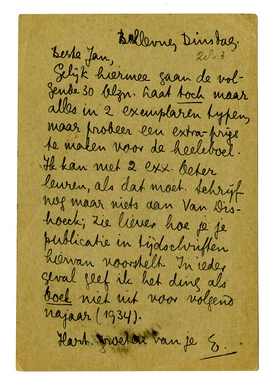 Bellevue, Dinsdag.
Beste Jan,
Gelijk hiermee gaan de vol-
gende 30 blzn. Laat toch maar
alles in 2 exemplaren typen,
maar probeer een extra-prijs
te maken voor de heelboel.
Ik kan met 2 exx. beter
leuren, als dat moet. Schrijf
nog maar niets aan Van Dis-
hoeck; zie liever hoe je je
publicatie in tijdschriften
hiervan voorstelt. In ieder
geval geef ik het ding als
boek niet uit voor volgend
najaar (1934).
Hart. groeten van je E.